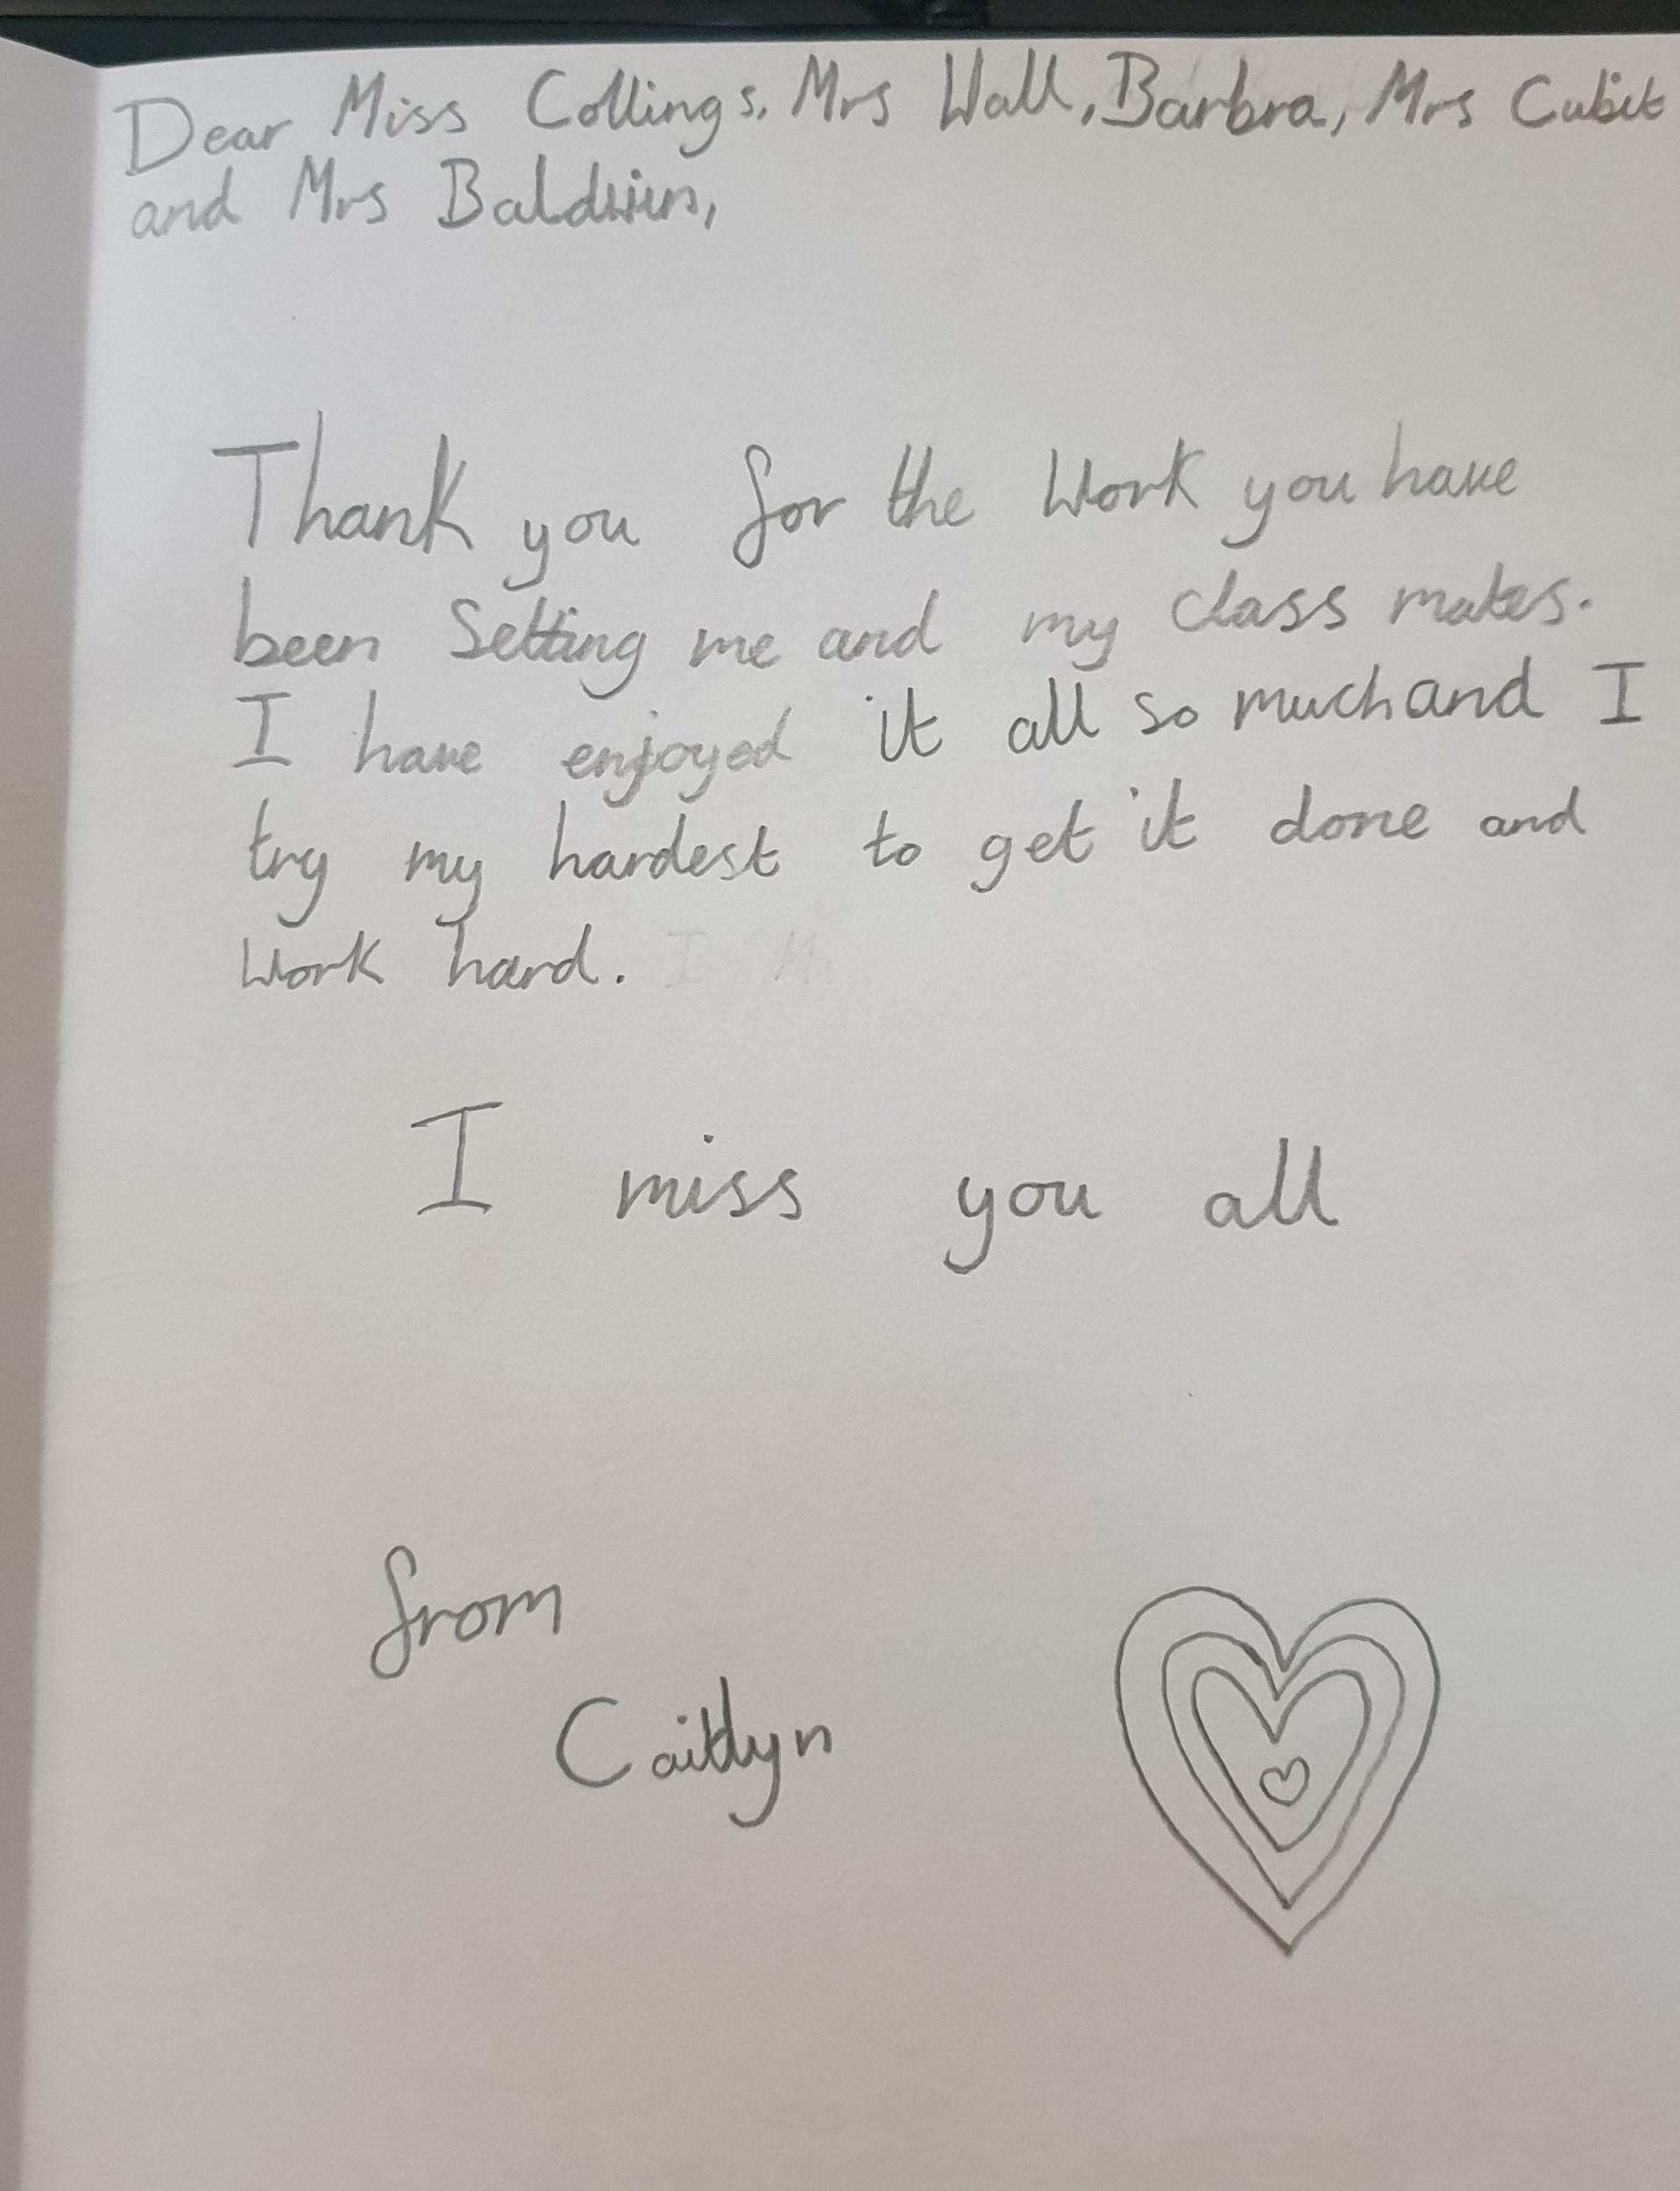 Dear Miss Collings, Mrs Wall, Barbra, Mrs Cubit
and Mrs Baldwin,
Thank you for the work you have
been setting me and my class mates.
I have enjoyed it all so much and I
try my hardest to get it done and
work hard.
I miss you all
from
Caitlyn